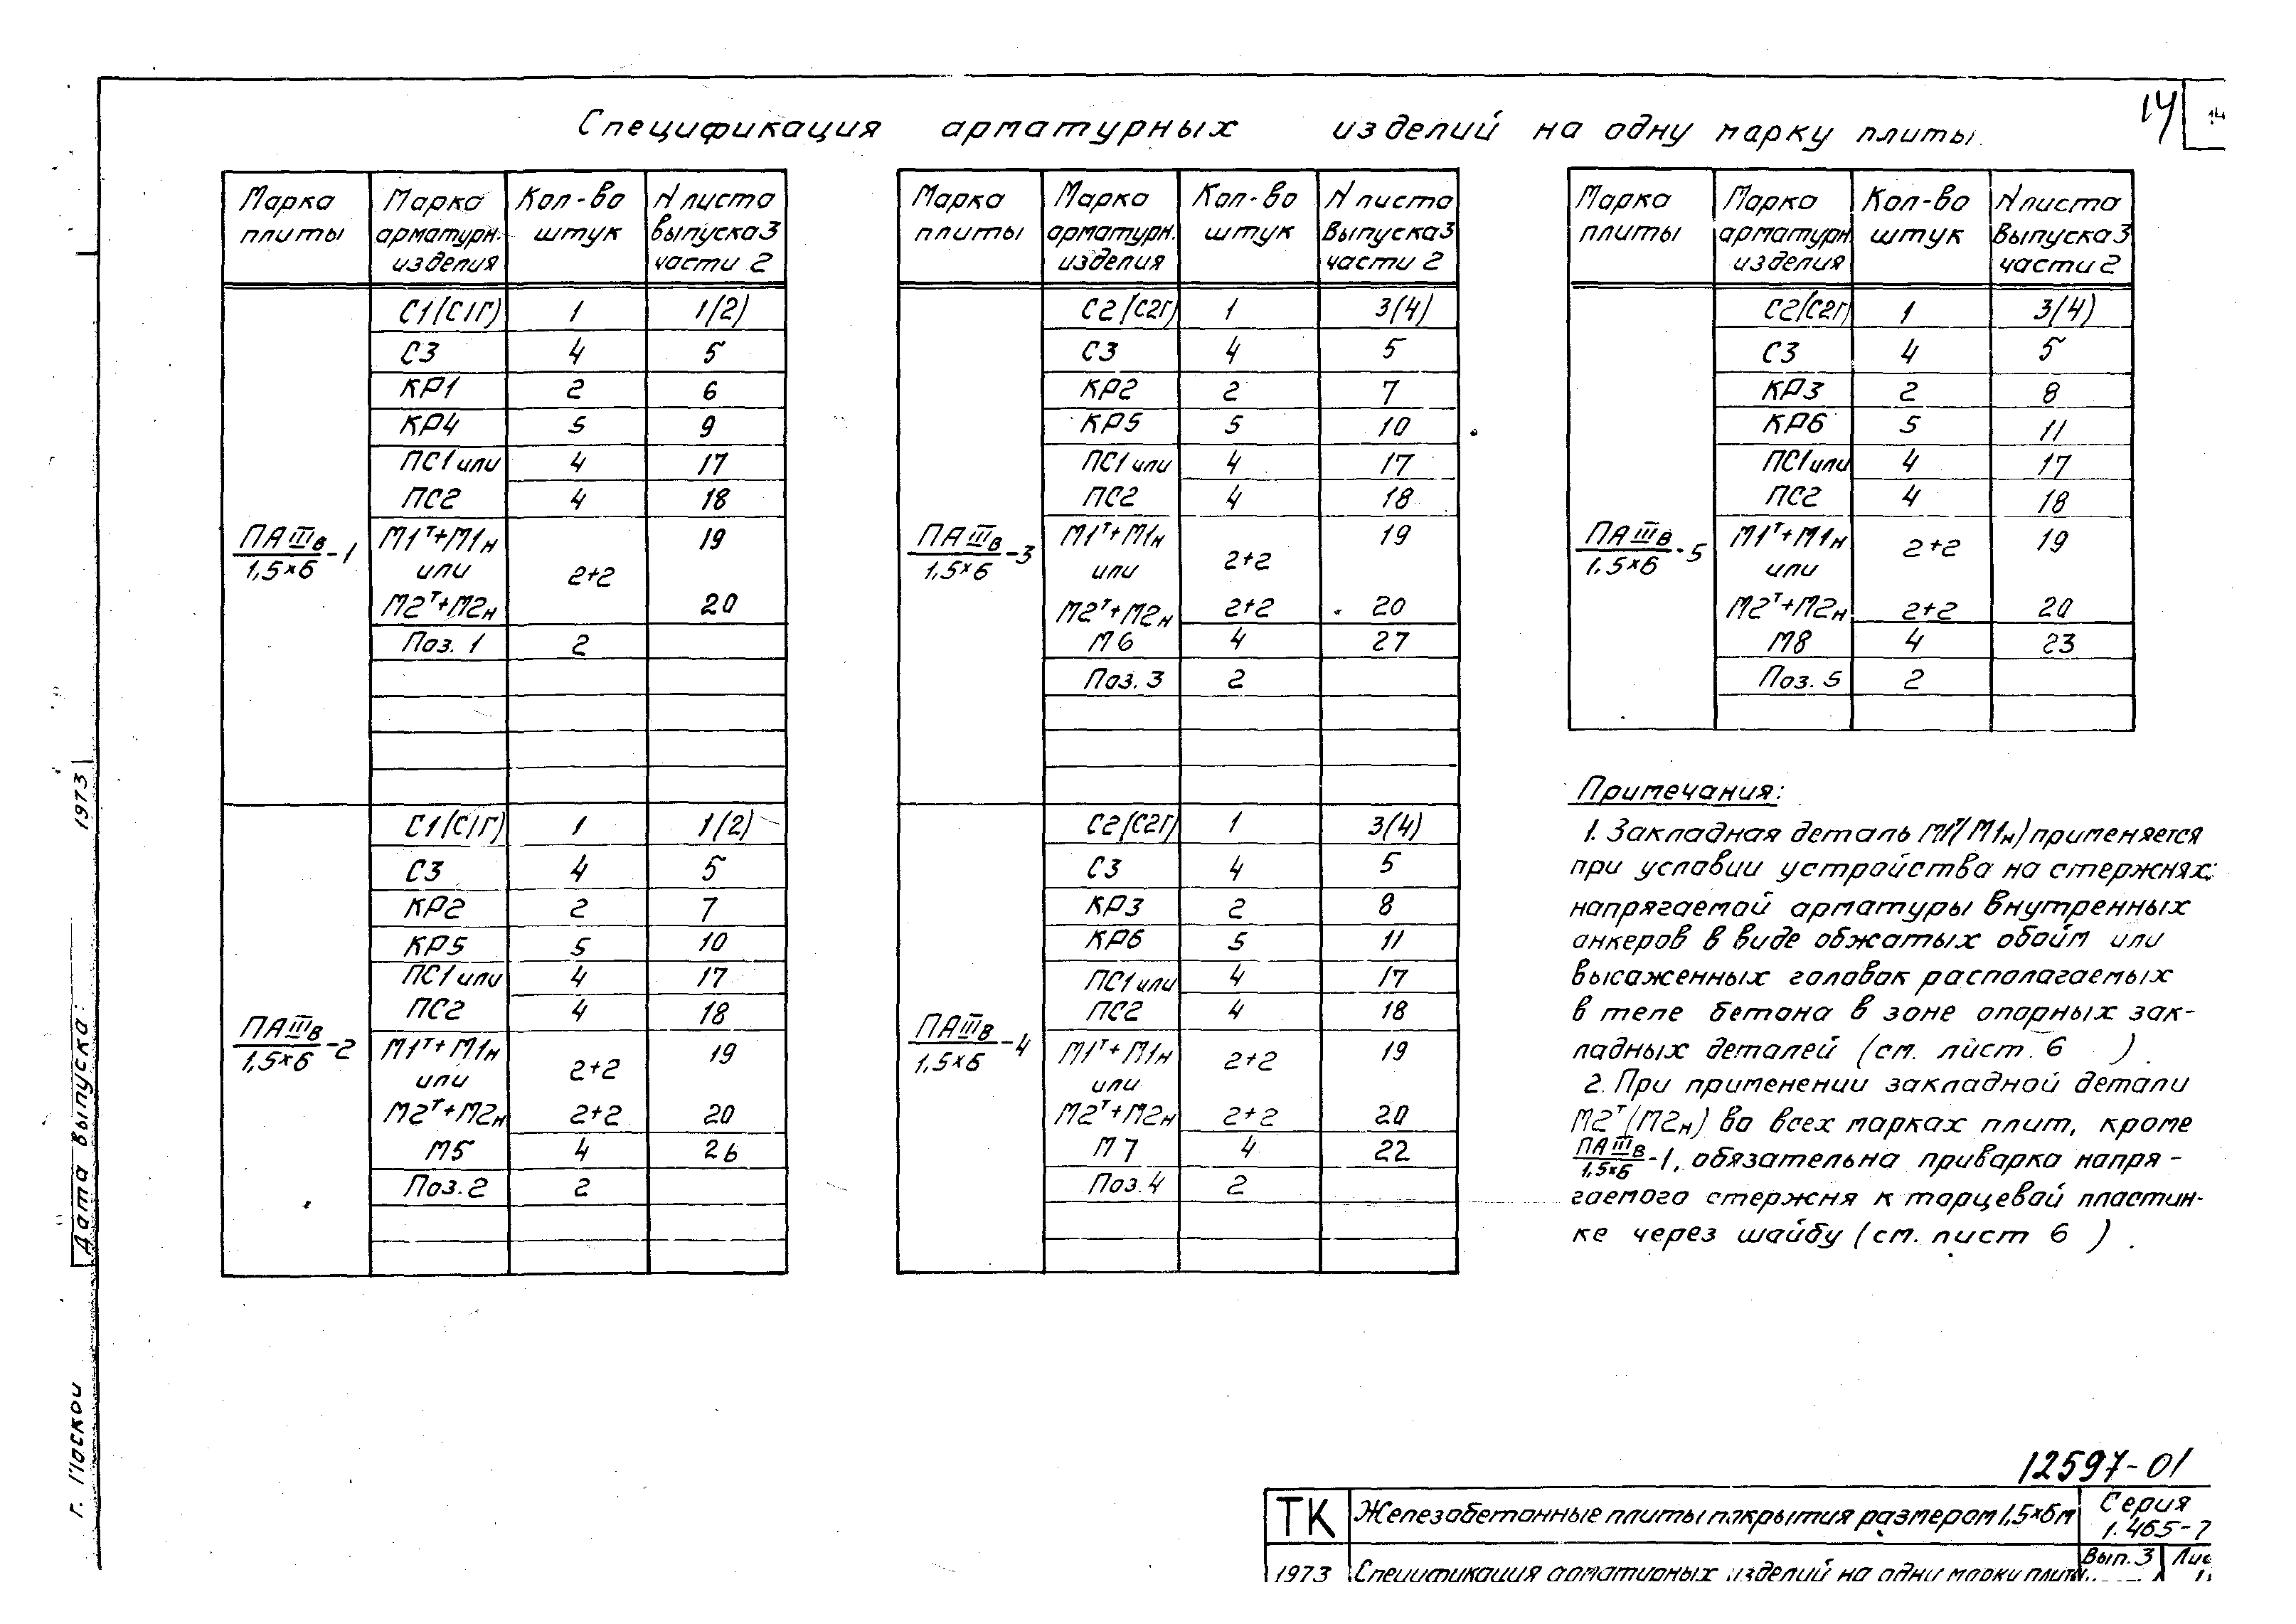 Спецификация арматурных изделий на одну марку плиты.
14
14
Марка плиты | Марка арматурн. изделия | Кол-во штук | N листа выпуска 3 части 2
ПАIIIв/1,5×6-1
С1(С1Г) 1 1(2)
С3 4 5
КР1 2 6
КР4 5 9
ПС1 или 4 17
ПС2 4 18
М1т+М1н 19
или 2+2
М2т+М2н 20
Поз. 1 2
ПАIIIв/1,5×6-2
С1(С1Г) 1 1(2)
С3 4 5
КР2 2 7
КР5 5 10
ПС1 или 4 17
ПС2 4 18
М1т+М1н 2+2 19
или
М2т+М2н 2+2 20
М5 4 26
Поз. 2 2
Марка плиты | Марка арматурн. изделия | Кол-во штук | N листа выпуска 3 части 2
ПАIIIв/1,5×6-3
С2(С2Г) 1 3(4)
С3 4 5
КР2 2 7
КР5 5 10
ПС1 или 4 17
ПС2 4 18
М1т+М1н 2+2 19
или
М2т+М2н 2+2 20
М6 4 27
Поз. 3 2
ПАIIIв/1,5×6-4
С2(С2Г) 1 3(4)
С3 4 5
КР3 2 8
КР6 5 11
ПС1 или 4 17
ПС2 4 18
М1т+М1н 2+2 19
или
М2т+М2н 2+2 20
М7 4 22
Поз. 4 2
Марка плиты | Марка арматурн. изделия | Кол-во штук | N листа выпуска 3 части 2
ПАIIIв/1,5×6-5
С2(С2Г) 1 3(4)
С3 4 5
КР3 2 8
КР6 5 11
ПС1 или 4 17
ПС2 4 18
М1т+М1н 2+2 19
или
М2т+М2н 2+2 20
М8 4 23
Поз. 5 2
Примечания:
1. Закладная деталь М1т(М1н) применяется
при условии устройства на стержнях
напрягаемой арматуры внутренных
анкеров в виде обжатых обойм или
высаженных головок располагаемых
в теле бетона в зоне опорных зак-
ладных деталей (см. лист 6 ).
2. При применении закладной детали
М2т(М2н) во всех марках плит, кроме
ПАIIIв/1,5×6-1, обязательна приварка напря-
гаемого стержня к торцевой пластин-
ке через шайбу (см. лист 6 ).
г. Москва
Дата выпуска: 1973
12597-01
ТК Железобетонные плиты покрытия размером 1,5×6м Серия 1.465-7
1973 Спецификация арматурных изделий на одну марку плиты. Вып. 3